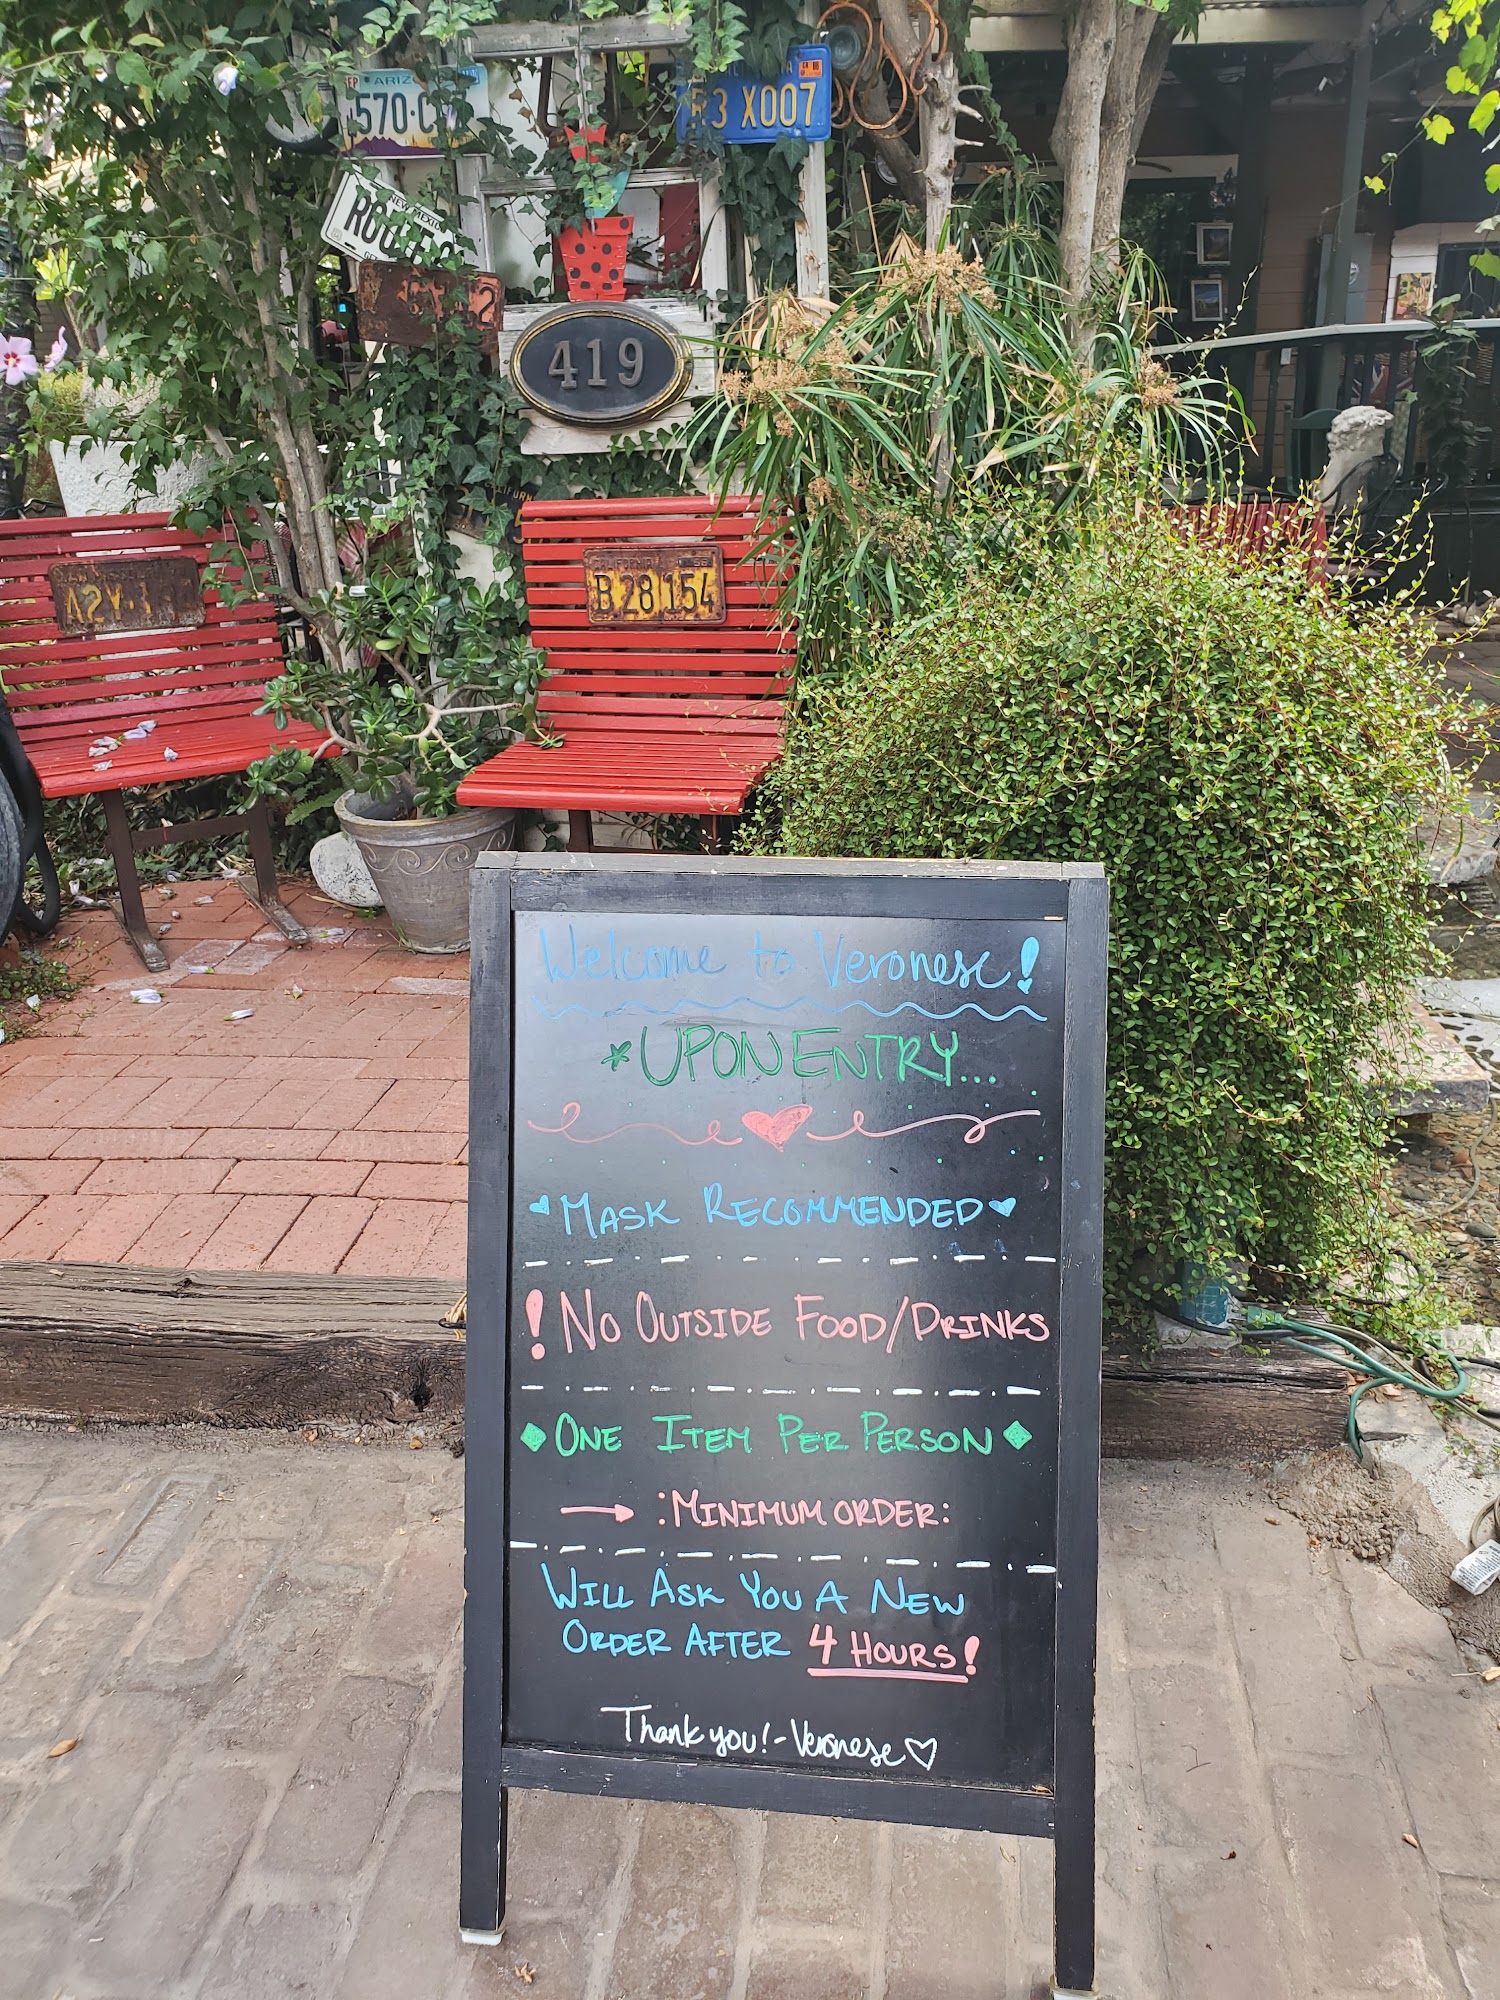 ARIZ
570-C
R3 X007
NEW MEXICO
419
CALIFORNIA 56
B 28 154
Welcome to Veronese!
*UPON ENTRY...
MASK RECOMMENDED
! NO OUTSIDE FOOD/DRINKS
ONE ITEM PER PERSON
→ :MINIMUM ORDER:
WILL ASK YOU A NEW
ORDER AFTER 4 HOURS!
Thank you! - Veronese ♡